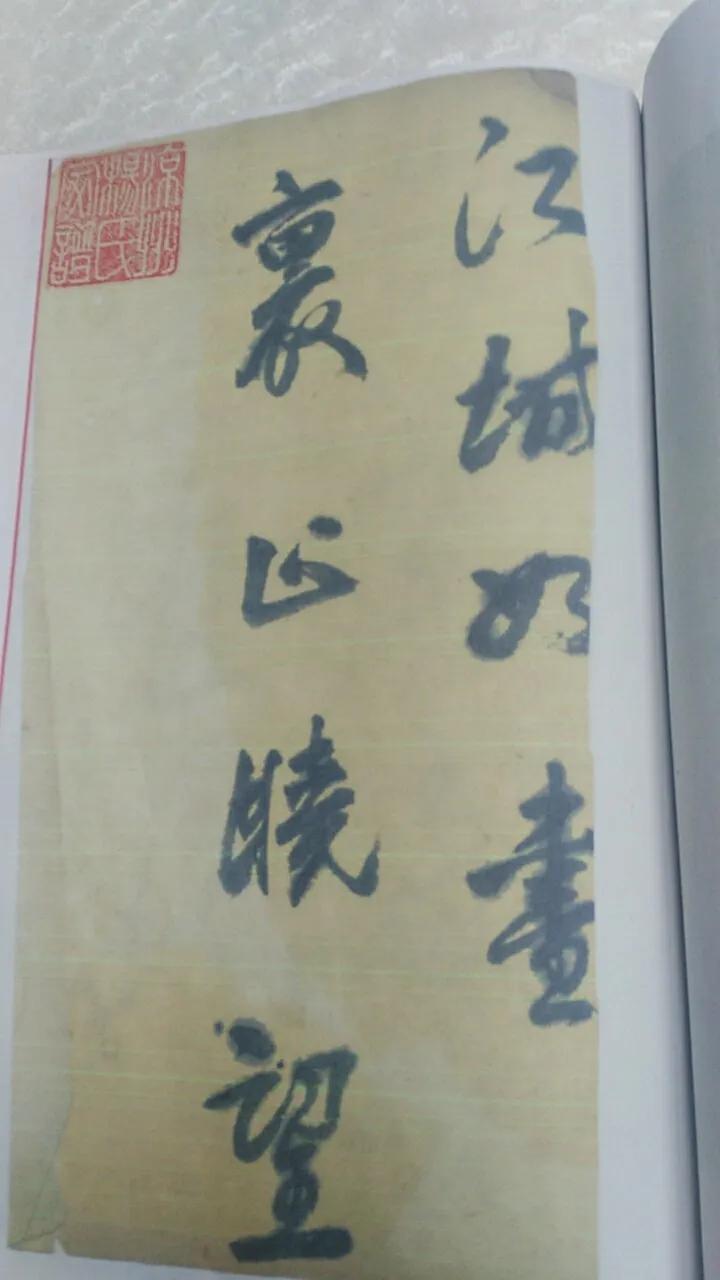 江城如畫
裏山曉望